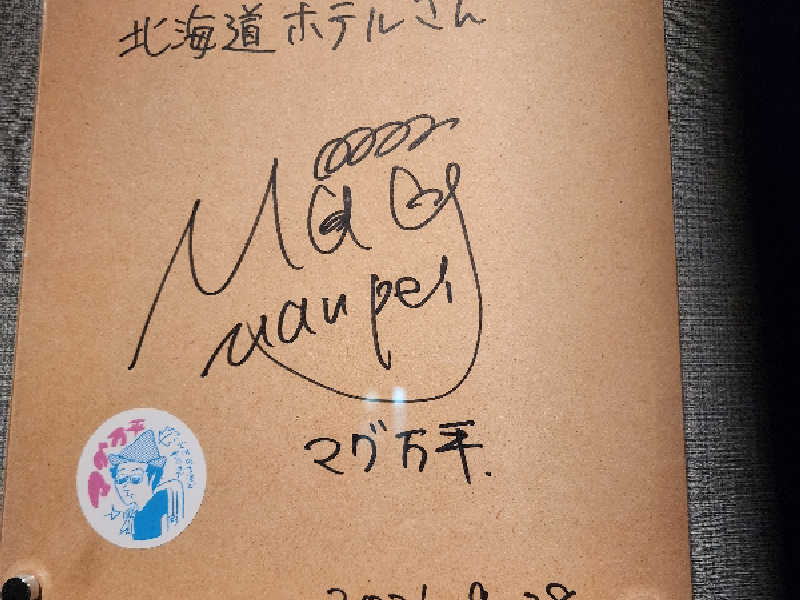 北海道ホテルさん
Mag
manpei
マグ万平.